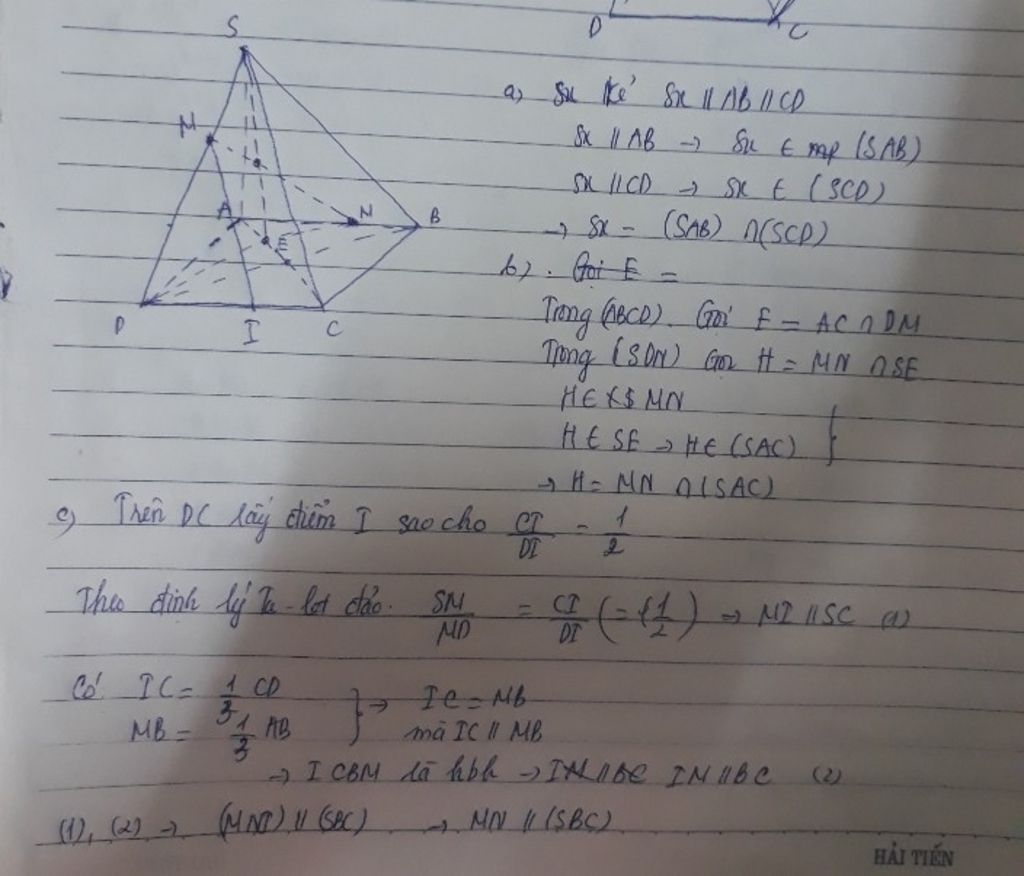 D C
S
M
A N B
E
D I C
a) Sx kẻ Sx // AB // CD
Sx // AB → Sx ∈ mp (SAB)
Sx // CD → Sx ∈ (SCD)
→ Sx = (SAB) ∩ (SCD)
b) . Gọi E =
Trong (ABCD). Gọi E = AC ∩ DM
Trong (SDN) Gọi H = MN ∩ SE
H ∈ MN
H ∈ SE → H ∈ (SAC) }
→ H = MN ∩ (SAC)
c) Trên DC lấy điểm I sao cho CI/DI = 1/2
Theo định lý Ta-let đảo. SM/MD = CI/DI (= 1/2) → MI // SC (1)
Có IC = 1/3 CD } → IC = MB
MB = 1/3 AB mà IC // MB
→ ICBM là hbh → IN // BC IN // BC (2)
(1), (2) → (MNI) // (SBC) → MN // (SBC)
HẢI TIẾN